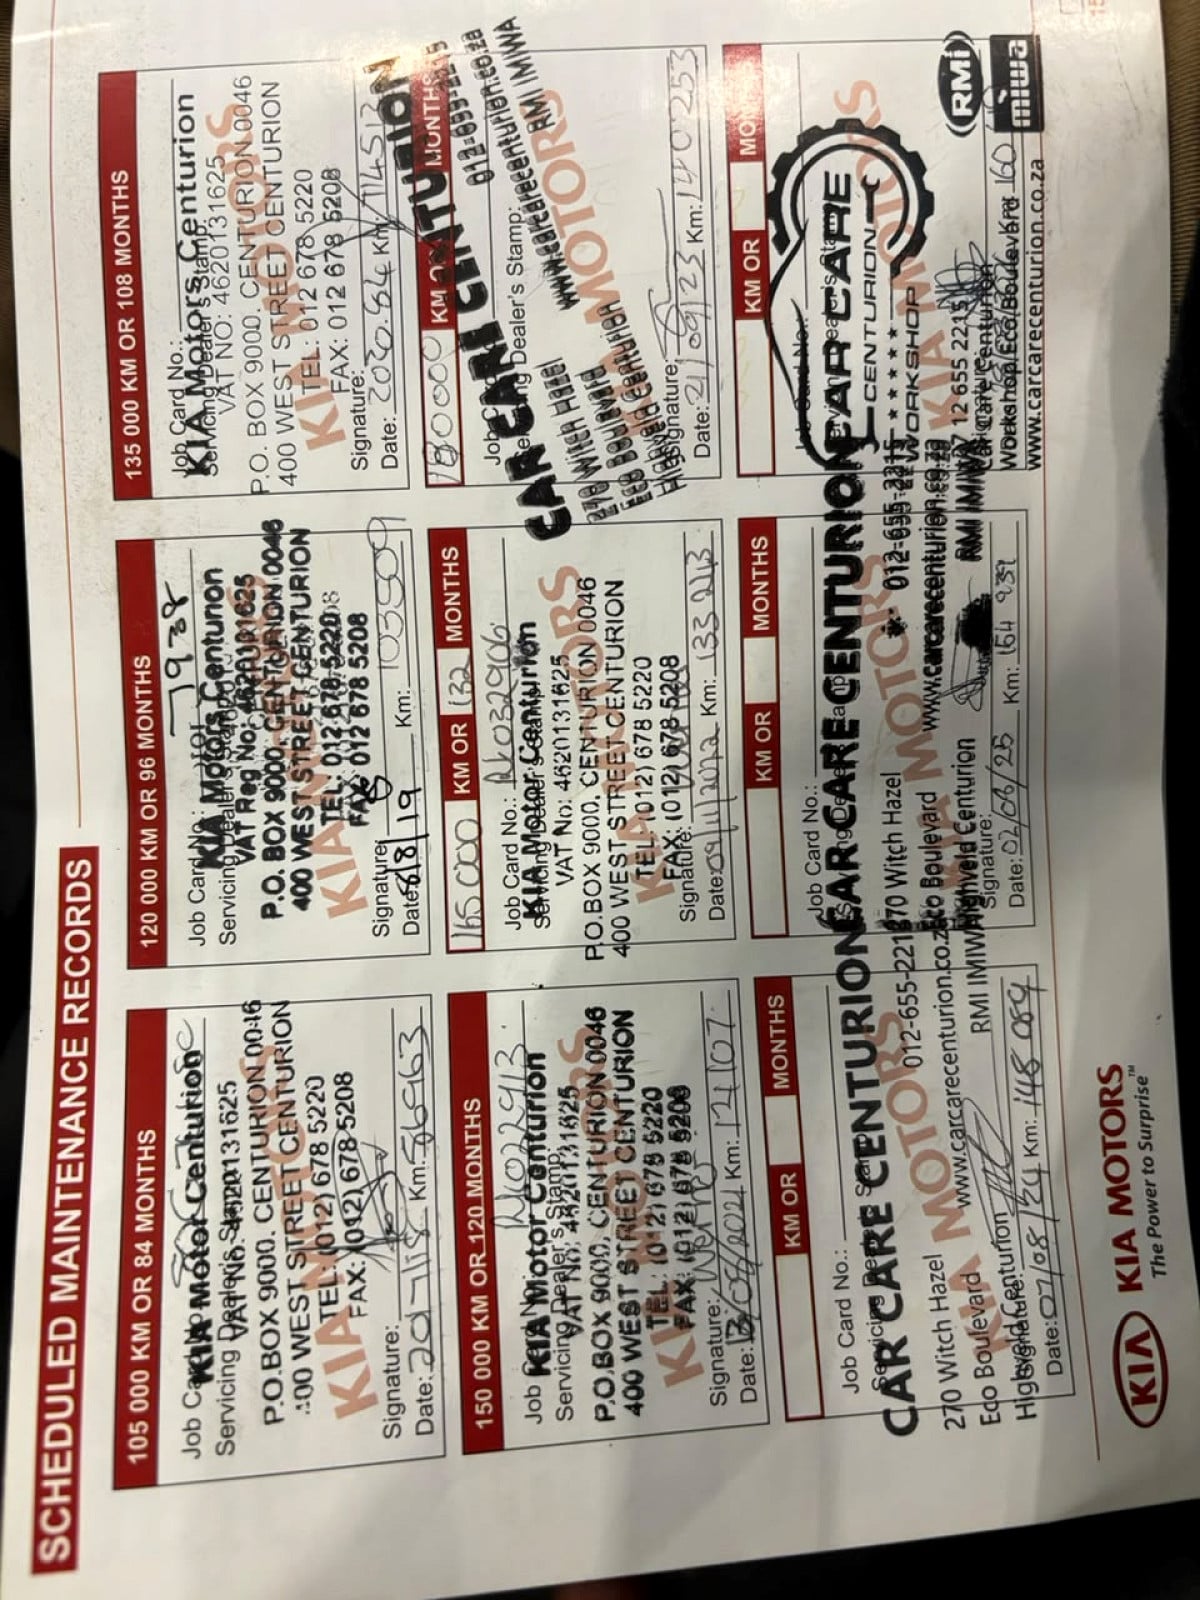 SCHEDULED MAINTENANCE RECORDS
105 000 KM OR 84 MONTHS
Servicing Dealer's Stamp:
KIA Motor Centurion
VAT No: 4620131625
P.O.BOX 9000. CENTURION 0046
400 WEST STREET CENTURION
TEL: (012) 678 5220
FAX: (012) 678 5208
KIA MOTORS
Signature:
Date: Km: 86963
120 000 KM OR 96 MONTHS
Job Card No.: 7938
Servicing Dealer's Stamp:
KIA Motors Centurion
VAT Reg No: 4620131625
P.O. BOX 9000, CENTURION 0046
400 WEST STREET CENTURION
TEL: 012 678 5220
FAX: 012 678 5208
KIA MOTORS
Signature:
Date: 8/8/19 Km: 103509
135 000 KM OR 108 MONTHS
Job Card No.:
Servicing Dealer's Stamp:
KIA Motors Centurion
VAT NO: 4620131625
P.O. BOX 9000. CENTURION 0046
400 WEST STREET CENTURION
TEL: 012 678 5220
FAX: 012 678 5208
KIA MOTORS
Signature:
Date: Km: 114513
150 000 KM OR 120 MONTHS
Job Card No.: R1022913
Servicing Dealer's Stamp:
KIA Motor Centurion
VAT No: 4620131625
P.O.BOX 9000, CENTURION 0046
400 WEST STREET CENTURION
TEL: (012) 678 5220
FAX: (012) 678 5208
KIA MOTORS
Signature:
Date: 13/08/2021 Km: 124107
165 000 KM OR 132 MONTHS
Job Card No.: R1032906
Servicing Dealer's Stamp:
KIA Motor Centurion
VAT No: 4620131625
P.O.BOX 9000, CENTURION 0046
400 WEST STREET CENTURION
TEL: (012) 678 5220
FAX: (012) 678 5208
KIA MOTORS
Signature:
Date: 09/11/2022 Km: 133213
180000 KM OR MONTHS
Servicing Dealer's Stamp:
CAR CARE CENTURION
270 Witch Hazel 012-655-2215
Eco Boulevard www.carcarecenturion.co.za
Highveld Centurion RMI IMIWA
KIA MOTORS
Signature:
Date: 21/09/23 Km: 140253
KM OR MONTHS
Job Card No.:
Servicing Dealer's Stamp:
CAR CARE CENTURION
270 Witch Hazel 012-655-2215
Eco Boulevard www.carcarecenturion.co.za
Highveld Centurion RMI IMIWA
KIA MOTORS
Signature:
Date: 07/08/24 Km: 148 089
KM OR MONTHS
Job Card No.:
Servicing Dealer's Stamp:
CAR CARE CENTURION
270 Witch Hazel 012-655-2215
Eco Boulevard www.carcarecenturion.co.za
Highveld Centurion RMI IMIWA
KIA MOTORS
Signature:
Date: 02/06/25 Km: 154 939
KM OR
Job Card No.:
CAR CARE
CENTURION
★★★★★ WORKSHOP
KIA MOTORS
12 655 2215
Car Care Centurion
Workshop Eco Boulevard
www.carcarecenturion.co.za
Km: 160
RMi
miwa
KIA KIA MOTORS
The Power to Surprise™